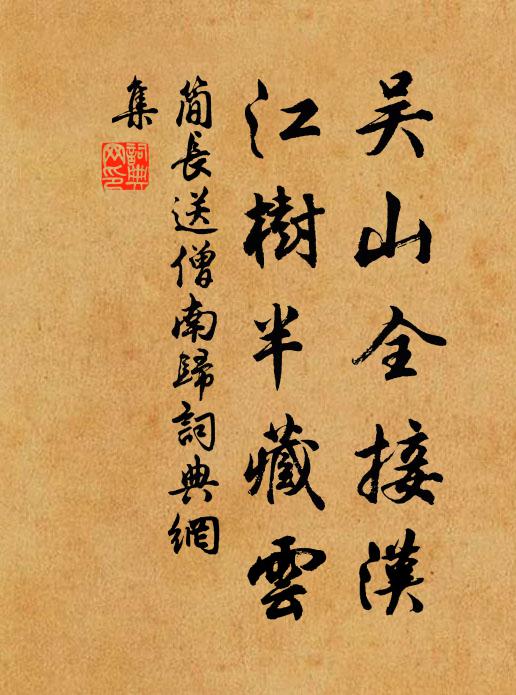 吴山全接漢
江樹半藏雲
簡長送僧南歸詞典網
集
詞典
网印